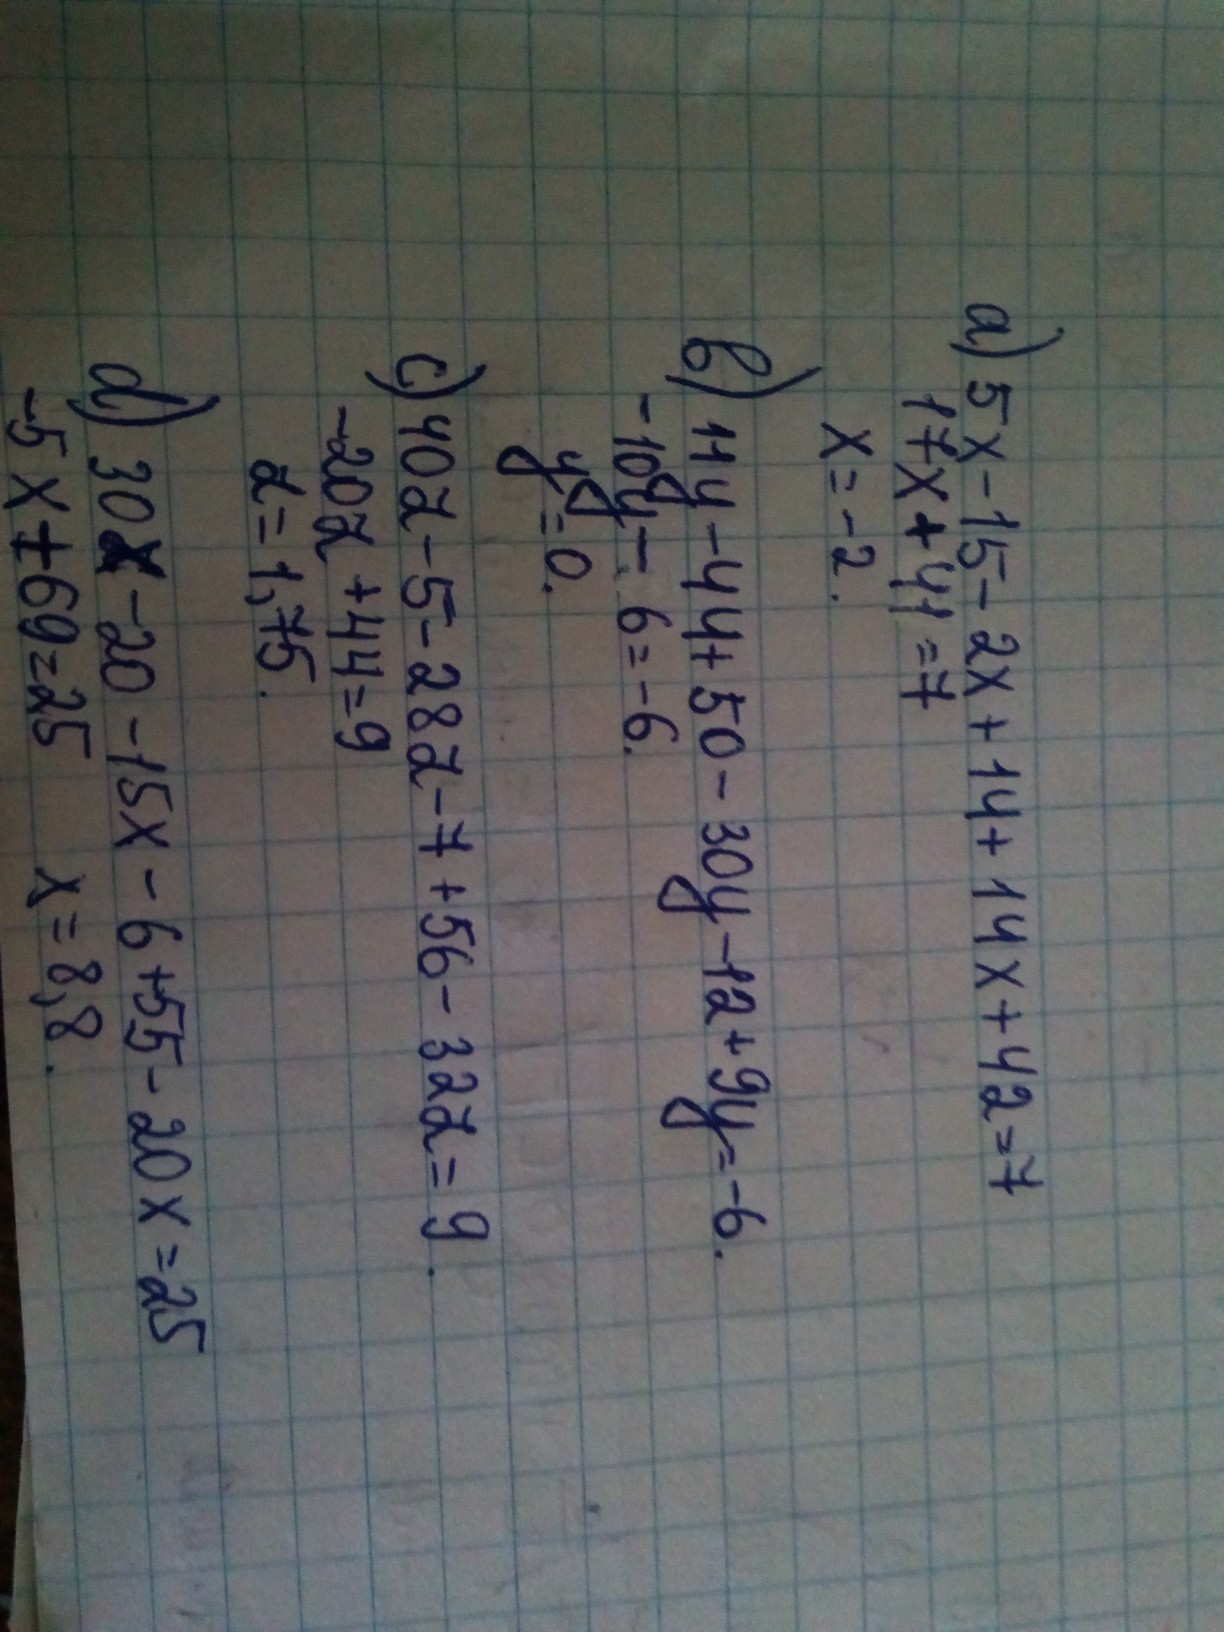 a) 5x-15-2x+14+14x+42=7
17x+41=7
x=-2.
b) 11y-44+50-30y-12+9y=-6.
-10y-6=-6.
y=0.
c) 40z-5-28z-7+56-32z=9.
-20z+44=9
z=1,75.
d) 30x-20-15x-6+55-20x=25
-5x+69=25 x=8,8.